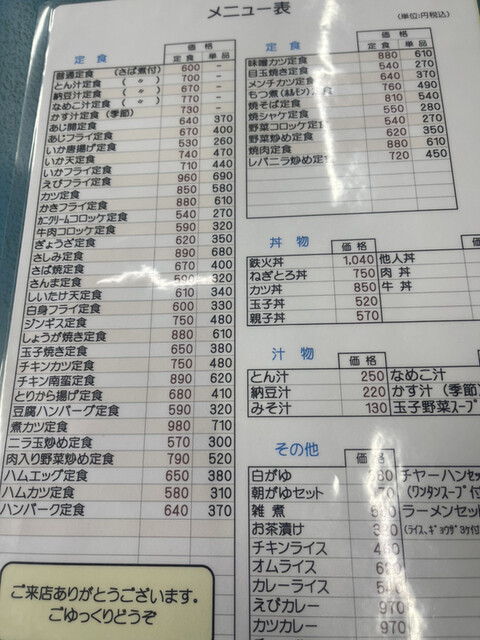 メニュー表
(単位:円税込)
定食 価格
定食 単品
普通定食 (さば煮付) 600 -
とん汁定食 ( 〃 ) 700 -
納豆汁定食 ( 〃 ) 670 -
なめこ汁定食 ( 〃 ) 770 -
かす汁定食 (季節) 730 -
あじ開定食 640 370
あじフライ定食 670 400
いか唐揚げ定食 530 260
いか天定食 740 470
いかフライ定食 710 440
えびフライ定食 960 690
カツ定食 850 580
かきフライ定食 880 610
カニクリームコロッケ定食 540 270
牛肉コロッケ定食 590 320
ぎょうざ定食 620 350
さしみ定食 890 680
さば焼定食 670 400
さんま定食 590 320
しいたけ天定食 610 340
白身フライ定食 600 330
ジンギス定食 750 480
しょうが焼き定食 880 610
玉子焼き定食 650 380
チキンカツ定食 750 480
チキン南蛮定食 890 620
とりから揚げ定食 680 410
豆腐ハンバーグ定食 590 320
煮カツ定食 980 710
ニラ玉炒め定食 570 300
肉入り野菜炒め定食 790 520
ハムエッグ定食 650 380
ハムカツ定食 580 310
ハンバーク定食 640 370
ご来店ありがとうございます。
ごゆっくりどうぞ
定食 価格
定食 単品
味噌カツ定食 880 610
目玉焼き定食 540 270
メンチカツ定食 640 370
もつ煮(ホルモン)定食 760 490
焼そば定食 810 540
焼シャケ定食 550 280
野菜コロッケ定食 540 270
野菜炒め定食 620 350
焼肉定食 880 610
レバニラ炒め定食 720 450
丼物 価格
鉄火丼 1,040 他人丼
ねぎとろ丼 750 肉丼
カツ丼 850 牛丼
玉子丼 520
親子丼 570
汁物 価格
とん汁 250 なめこ汁
納豆汁 220 かす汁 (季節)
みそ汁 130 玉子野菜スープ
その他 価格
白がゆ チャーハンセット
朝がゆセット (ワンタンスープ付
雑煮 ラーメンセット
お茶漬け (ライス、ギョウザ3ケ付
チキンライス
オムライス
カレーライス
えびカレー 970
カツカレー 970